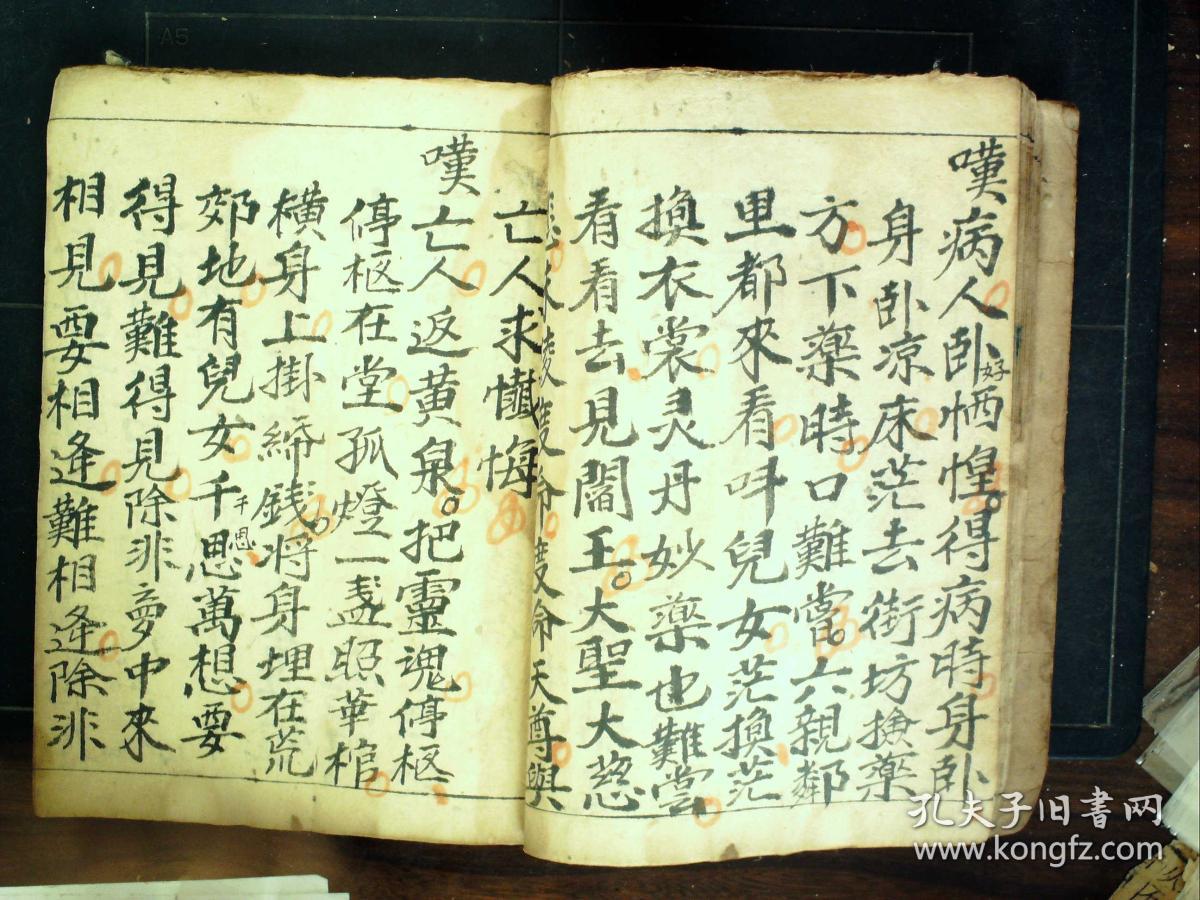 嘆病人臥好恓惶得病時身臥
身臥凉床茫去街坊撿藥
方下藥時口難當六親鄰
里都來看呌兒女茫換茫
換衣裳灵丹妙藥也難當
看看去見閻王大聖大慈
度命天尊與
亡人求懺悔
嘆亡人返黄泉把靈魂停柩
停柩在堂孤燈一盞照華棺
橫身上掛綿錢將身埋在荒
郊地有兒女千千思思萬想要
得見難得見除非夢中來
相見要相逢難相逢除非
孔夫子旧书网
www.kongfz.com
A5